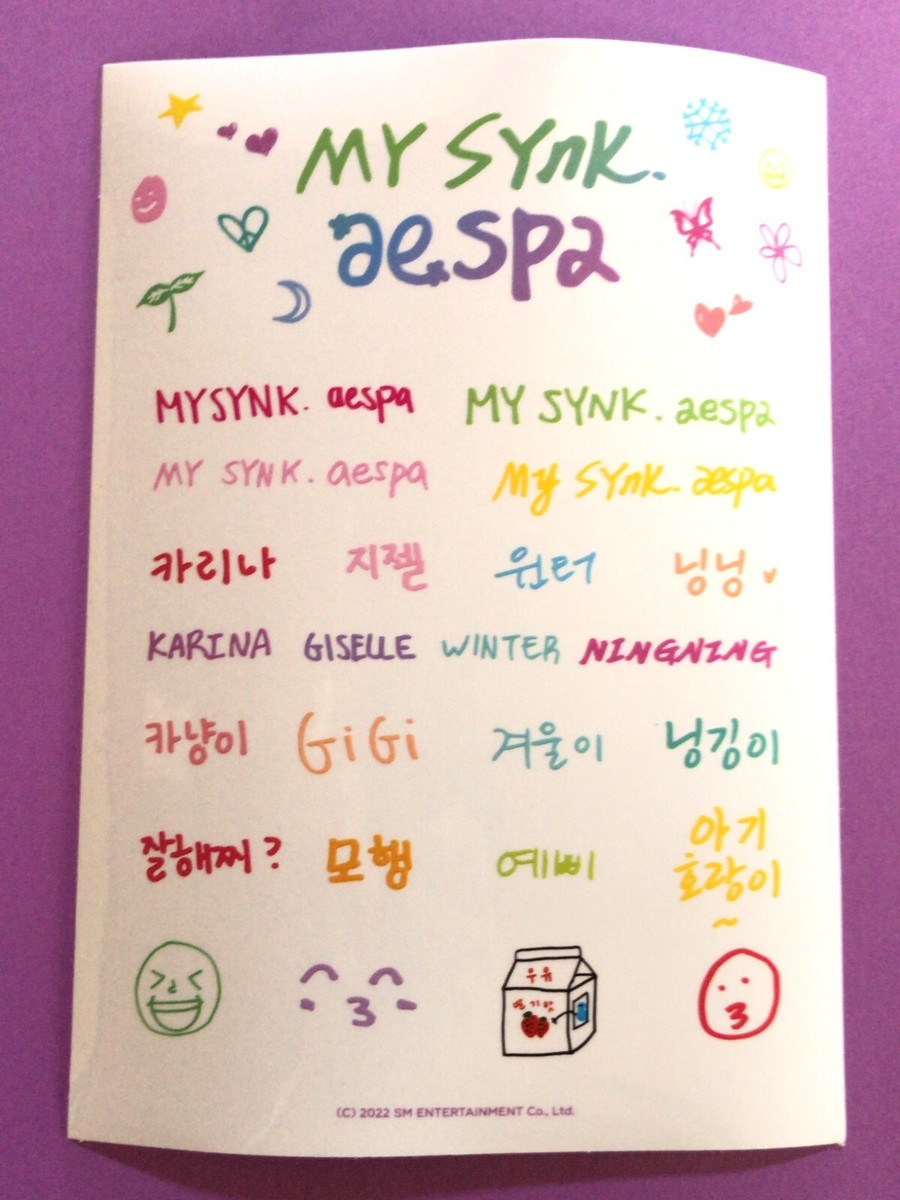 MY SYnK.
aespa
MYSYNK. aespa MY SYNK. aespa
MY SYNK. aespa My SYnK. aespa
카리나 지젤 윈터 닝닝
KARINA GISELLE WINTER NINGNING
카냥이 GiGi 겨울이 닝깅이
잘해찌? 모행 예삐 아기
호랑이
~
우유
딸기맛
(C) 2022 SM ENTERTAINMENT Co., Ltd.